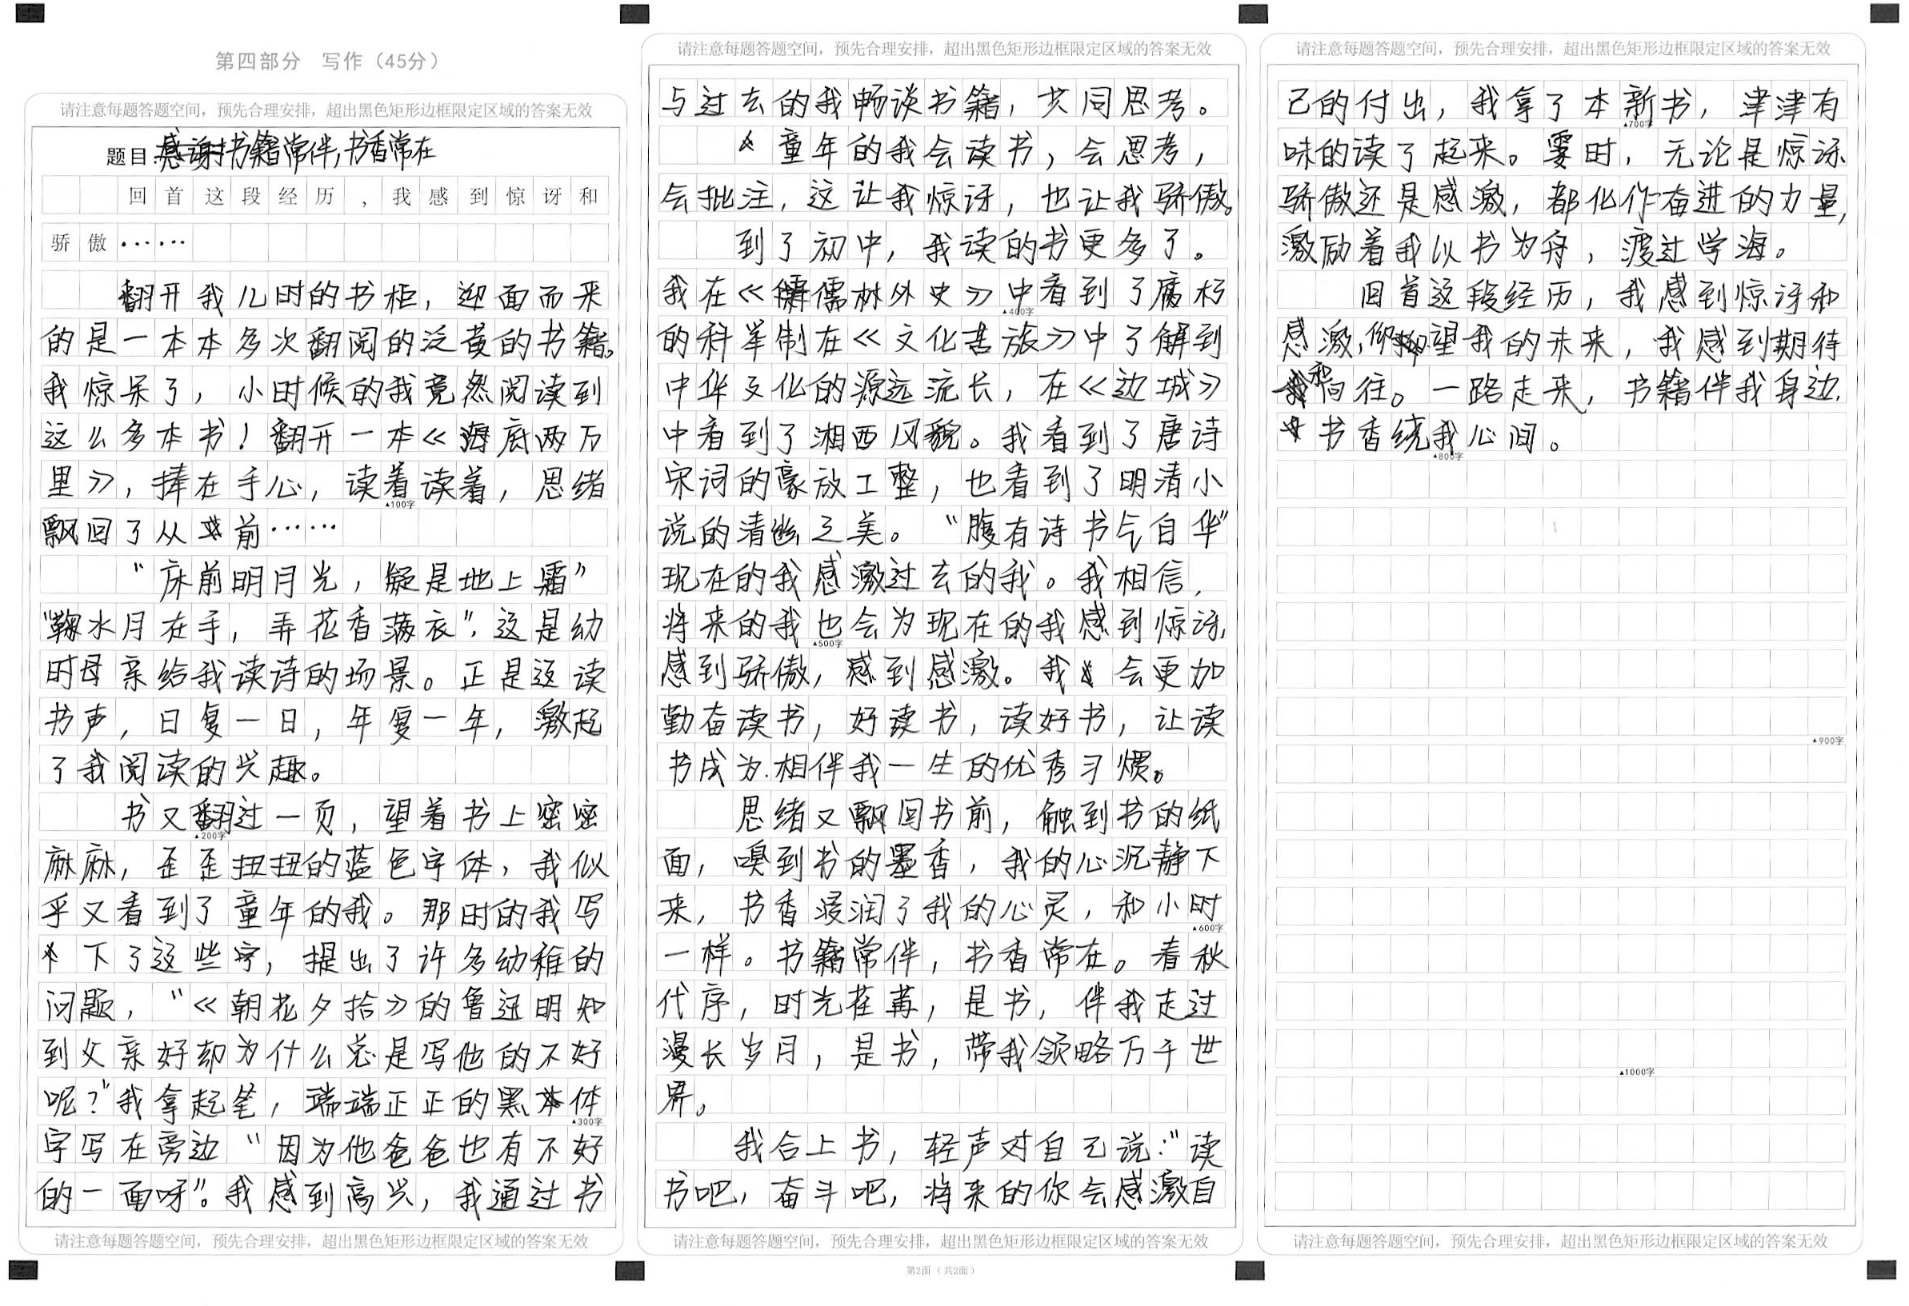 第四部分 写作（45分）
请注意每题答题空间，预先合理安排，超出黑色矩形边框限定区域的答案无效
题目：书籍常伴，书香常在
回首这段经历，我感到惊讶和
骄傲……
翻开我儿时的书柜，迎面而来
的是一本本多次翻阅的泛黄的书籍。
我惊呆了，小时候的我竟然阅读到
这么多本书！翻开一本《海底两万
里》，捧在手心，读着读着，思绪
▲100字
飘回了从前……
“床前明月光，疑是地上霜”
“鞠水月在手，弄花香满衣”，这是幼
时母亲给我读诗的场景。正是这读
书声，日复一日，年复一年，激起
了我阅读的兴趣。
书又翻过一页，望着书上密密
▲200字
麻麻，歪歪扭扭的蓝色字体，我似
乎又看到了童年的我。那时的我写
下了这些字，提出了许多幼稚的
问题，“《朝花夕拾》的鲁迅明知
到父亲好却为什么总是写他的不好
呢？”我拿起笔，端端正正的黑体
▲300字
字写在旁边“因为他爸爸也有不好
的一面呀”。我感到高兴，我通过书
请注意每题答题空间，预先合理安排，超出黑色矩形边框限定区域的答案无效
请注意每题答题空间，预先合理安排，超出黑色矩形边框限定区域的答案无效
与过去的我畅谈书籍，共同思考。
童年的我会读书，会思考，
会批注，这让我惊讶，也让我骄傲。
到了初中，我读的书更多了。
我在《儒林外史》中看到了腐朽
▲400字
的科举制在《文化苦旅》中了解到
中华文化的源远流长，在《边城》
中看到了湘西风貌。我看到了唐诗
宋词的豪放工整，也看到了明清小
说的清幽之美。“腹有诗书气自华”
现在的我感激过去的我。我相信，
将来的我也会为现在的我感到惊讶，
▲500字
感到骄傲，感到感激。我会更加
勤奋读书，好读书，读好书，让读
书成为相伴我一生的优秀习惯。
思绪又飘回书前，触到书的纸
面，嗅到书的墨香，我的心沉静下
来，书香浸润了我的心灵，和小时
▲600字
一样。书籍常伴，书香常在。春秋
代序，时光荏苒，是书，伴我走过
漫长岁月，是书，带我领略万千世
界。
我合上书，轻声对自己说：“读
书吧，奋斗吧，将来的你会感激自
请注意每题答题空间，预先合理安排，超出黑色矩形边框限定区域的答案无效
第2面（共2面）
请注意每题答题空间，预先合理安排，超出黑色矩形边框限定区域的答案无效
己的付出，我拿了本新书，津津有
▲700字
味的读了起来。霎时，无论是惊讶
骄傲还是感激，都化作奋进的力量，
激励着我以书为舟，渡过学海。
回首这段经历，我感到惊讶和
感激，仰望我的未来，我感到期待
和向往。一路走来，书籍伴我身边，
书香绕我心间。
▲800字
▲900字
▲1000字
请注意每题答题空间，预先合理安排，超出黑色矩形边框限定区域的答案无效